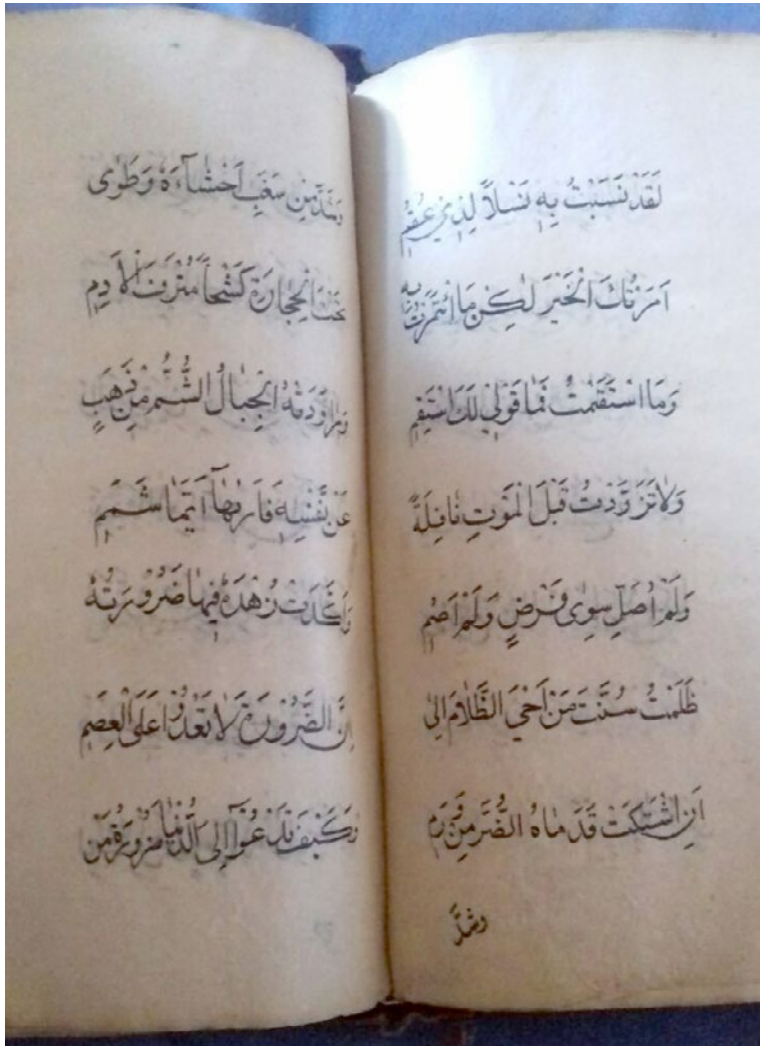 لَقَدْ نَسَبْتُ بِهِ نَسْلاً لِذِي عُقُمٍ
اَمَرْتُكَ الْخَيْرَ لٰكِنْ مَا ائْتَمَرْتُ بِهِ
وَمَا اسْتَقَمْتُ فَمَا قَوْلِي لَكَ اسْتَقِمِ
وَلَا تَزَوَّدْتُ قَبْلَ الْمَوْتِ نَافِلَةً
وَلَمْ اُصَلِّ سِوٰى فَرْضٍ وَلَمْ اَصُمِ
ظَلَمْتُ سُنَّتَ مَنْ اَحْيَ الظَّلَامَ اِلٰى
اَنِ اشْتَكَتْ قَدَمَاهُ الضُّرَّ مِنْ وَرَمِ
وشدَّ
وَشَدَّ مِنْ سَغَبٍ اَحْشَاۤءَهُ وَطَوٰى
تَحْتَ الْحِجَارَةِ كَشْحاً مُتْرَفَ الْاَدَمِ
وَرَاوَدَتْهُ الْجِبَالُ الشُّمُّ مِنْ ذَهَبٍ
عَنْ نَفْسِهِ فَاَرٰيهَا اَيَّمَا شَمَمِ
وَاَكَّدَتْ زُهْدَهُ فِيهَا ضَرُورَتُهُ
اِنَّ الضَّرُورَةَ لَا تَعْدُوا عَلَى الْعِصَمِ
وَكَيْفَ تَدْعُوۤا اِلَى الدُّنْيَا ضَرُورَةُ مَنْ